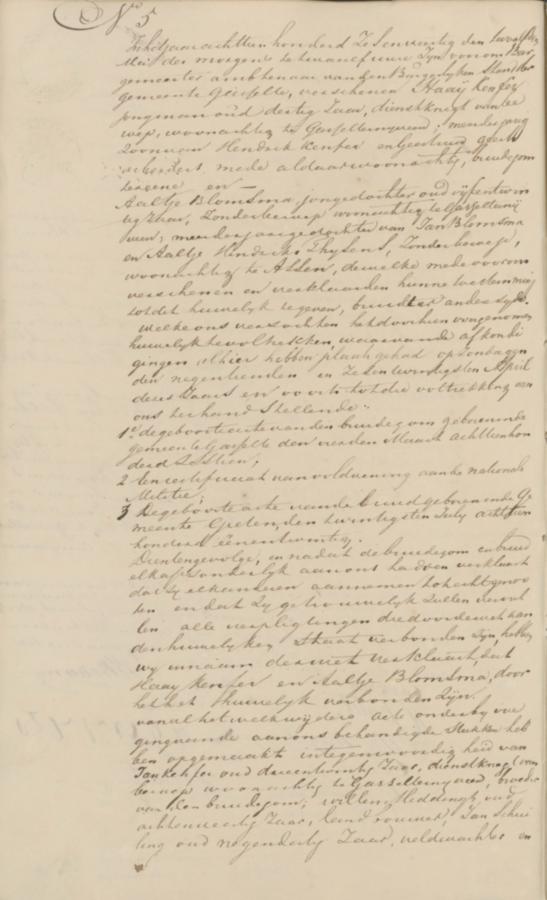 No 5
In het jaar achttien honderd Zesenveertig den twaalfden
Mei des morgens te tien uure zijn voor ons Bur
gemeester ambtenaar van den Burgelyken Stand der
gemeente Gasselte, verschenen Haaij Kenfer
jongman oud dertig Jaar, dienstknegt van be
roep, woonachtig te Gasselternyveen, meerderjarig
Zoon van Hendrik Kenfer en Geertruid Geert
mede aldaar woonachtig, bruidegom
ter eene en
Aaltje Blomsma jongedochter oud vijfentwin
tig Jaar, Zonder beroep woonachtig te Gasselternij
veen, meerderjarige dochter van Jan Blomsma
en Aaltje Hendriks Thysens, Zonder beroep,
woonachtig te Assen, dewelke mede voor ons
verschenen en verklaarden hunne toestemming
tot dit huwelijk te geven, bruid ter andere zyde.
Welke ons verzochten het door hun voorgenomen
huwelijk te voltrekken, waarvan de afkondi
gingen alhier hebben plaats gehad op Zondagen
den negentienden en Zesentwintigsten April
dezes Jaars en voorts tot die voltrekking aan
ons ter hand Stellende:
1o de geboorteacte van den bruidegom geboren in de
gemeente Gasselte den vierden Maart achttienhon
derd Zestien;
2 Een certificaat van voldoening aan de nationale
Militie;
3 De geboorte acte van de bruid geboren in de Ge
meente Gieten, den twintigsten July achttien
honderd eenentwintig.
Dientengevolge, en nadat de bruidegom en bruid
elk afzonderlyk aan ons hadden verklaart
dat zy elkanderen aannemen tot echtgenoo
ten en dat Zy getrouwelyk Zullen vervul
len alle verpligtingen die door de wet aan
den huwelyken staat verbonden zyn, hebben
wy in naam der wet verklaart, dat
Haaij Kenfer en Aaltje Blomsma, door
het huwelyk verbonden Zyn.
van al het welk wij deze acte onder by voe
ging van de aan ons behandigde Stukken heb
ben opgemaakt in tegenwoordigheid van
Jan Kenfer oud drieentwintig Jaar, dienstknegt van
beroep woonachtig te Gasselternyveen, broeder
van den bruidegom, Willem Hiddingh oud
achtenveertig Jaar, landbouwer, Jan Schui
ling oud negendertig Jaar, veldwachter en